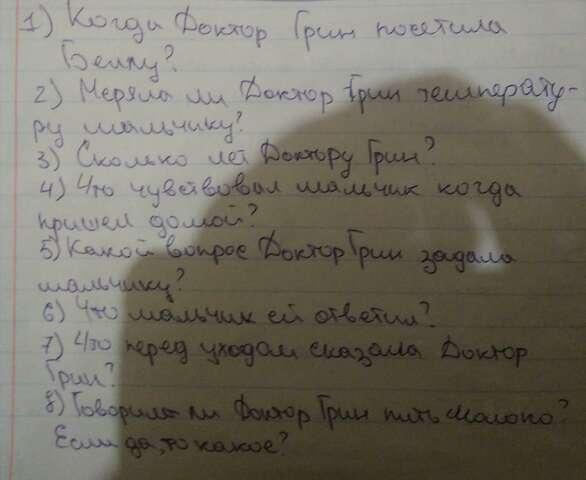 1) Когда Доктор Грин посетила
Белку?
2) Меряла ли Доктор Грин температу-
ру мальчику?
3) Сколько лет Доктору Грин?
4) Что чувствовал мальчик когда
пришел домой?
5) Какой вопрос Доктор Грин задала
мальчику?
6) Что мальчик ей ответил?
7) Что перед уходом сказала Доктор
Грин?
8) Говорила ли Доктор Грин пить молоко?
Если да, то какое?